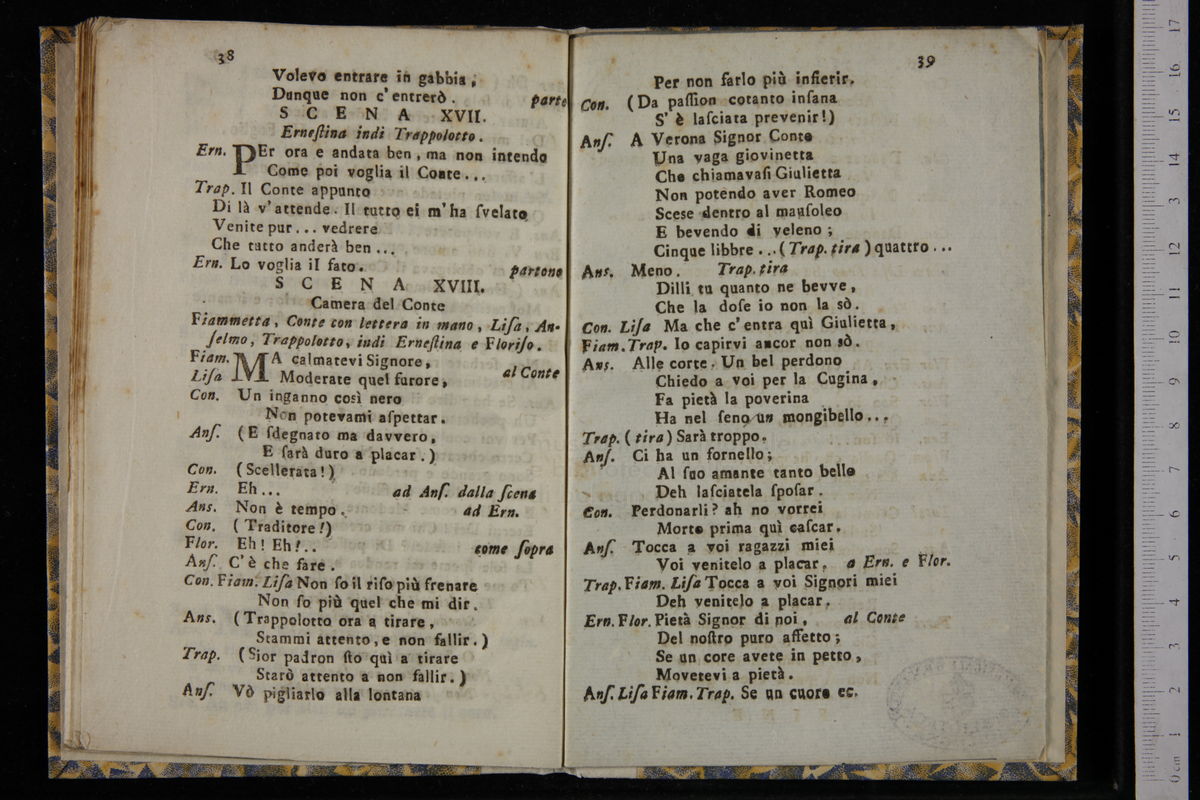 38
Volevo entrare in gabbia,
Dunque non c'entrerò. parte
SCENA XVII.
Erneſtina indi Trappolotto.
Ern. PEr ora e andata ben, ma non intendo
Come poi voglia il Conte...
Trap. Il Conte appunto
Di là v'attende. Il tutto ei m'ha ſvelato
Venite pur... vedrere
Che tutto anderà ben...
Ern. Lo voglia il fato. partono
SCENA XVIII.
Camera del Conte
Fiammetta, Conte con lettera in mano, Liſa, An-
ſelmo, Trappolotto, indi Erneſtina e Floriſo.
Fiam. MA calmatevi Signore,
Liſa Moderate quel furore, al Conte
Con. Un inganno così nero
Non potevami aſpettar.
Anſ. (E ſdegnato ma davvero,
E ſarà duro a placar.)
Con. (Scellerata!)
Ern. Eh... ad Anſ. dalla ſcena
Ans. Non è tempo. ad Ern.
Con. (Traditore!)
Flor. Eh! Eh!.. come ſopra
Anſ. C'è che fare.
Con. Fiam. Liſa Non ſo il riſo più frenare
Non ſo più quel che mi dir.
Ans. (Trappolotto ora a tirare,
Stammi attento, e non fallir.)
Trap. (Sior padron ſto quì a tirare
Starò attento a non fallir.)
Anſ. Vò pigliarlo alla lontana
39
Per non farlo più infierir.
Con. (Da paſſion cotanto inſana
S'è laſciata prevenir!)
Anſ. A Verona Signor Conte
Una vaga giovinetta
Che chiamavaſi Giulietta
Non potendo aver Romeo
Scese dentro al mauſoleo
E bevendo di veleno;
Cinque libbre... (Trap. tira) quattro...
Ans. Meno. Trap. tira
Dilli tu quanto ne bevve,
Che la doſe io non la sò.
Con. Liſa Ma che c'entra quì Giulietta,
Fiam. Trap. Io capirvi ancor non sò.
Ans. Alle corte, Un bel perdono
Chiedo a voi per la Cugina,
Fa pietà la poverina
Ha nel ſeno un mongibello...
Trap. (tira) Sarà troppo.
Anſ. Ci ha un fornello;
Al ſuo amante tanto bello
Deh laſciatela ſpoſar.
Con. Perdonarli? ah no vorrei
Morto prima quì caſcar.
Anſ. Tocca a voi ragazzi miei
Voi venitelo a placar, a Ern. e Flor.
Trap. Fiam. Liſa Tocca a voi Signori miei
Deh venitelo a placar.
Ern. Flor. Pietà Signor di noi, al Conte
Del noſtro puro affetto;
Se un core avete in petto,
Movetevi a pietà.
Anſ. Liſa Fiam. Trap. Se un cuore ec.
0 cm 1 2 3 4 5 6 7 8 9 10 11 12 3 14 15 16 17